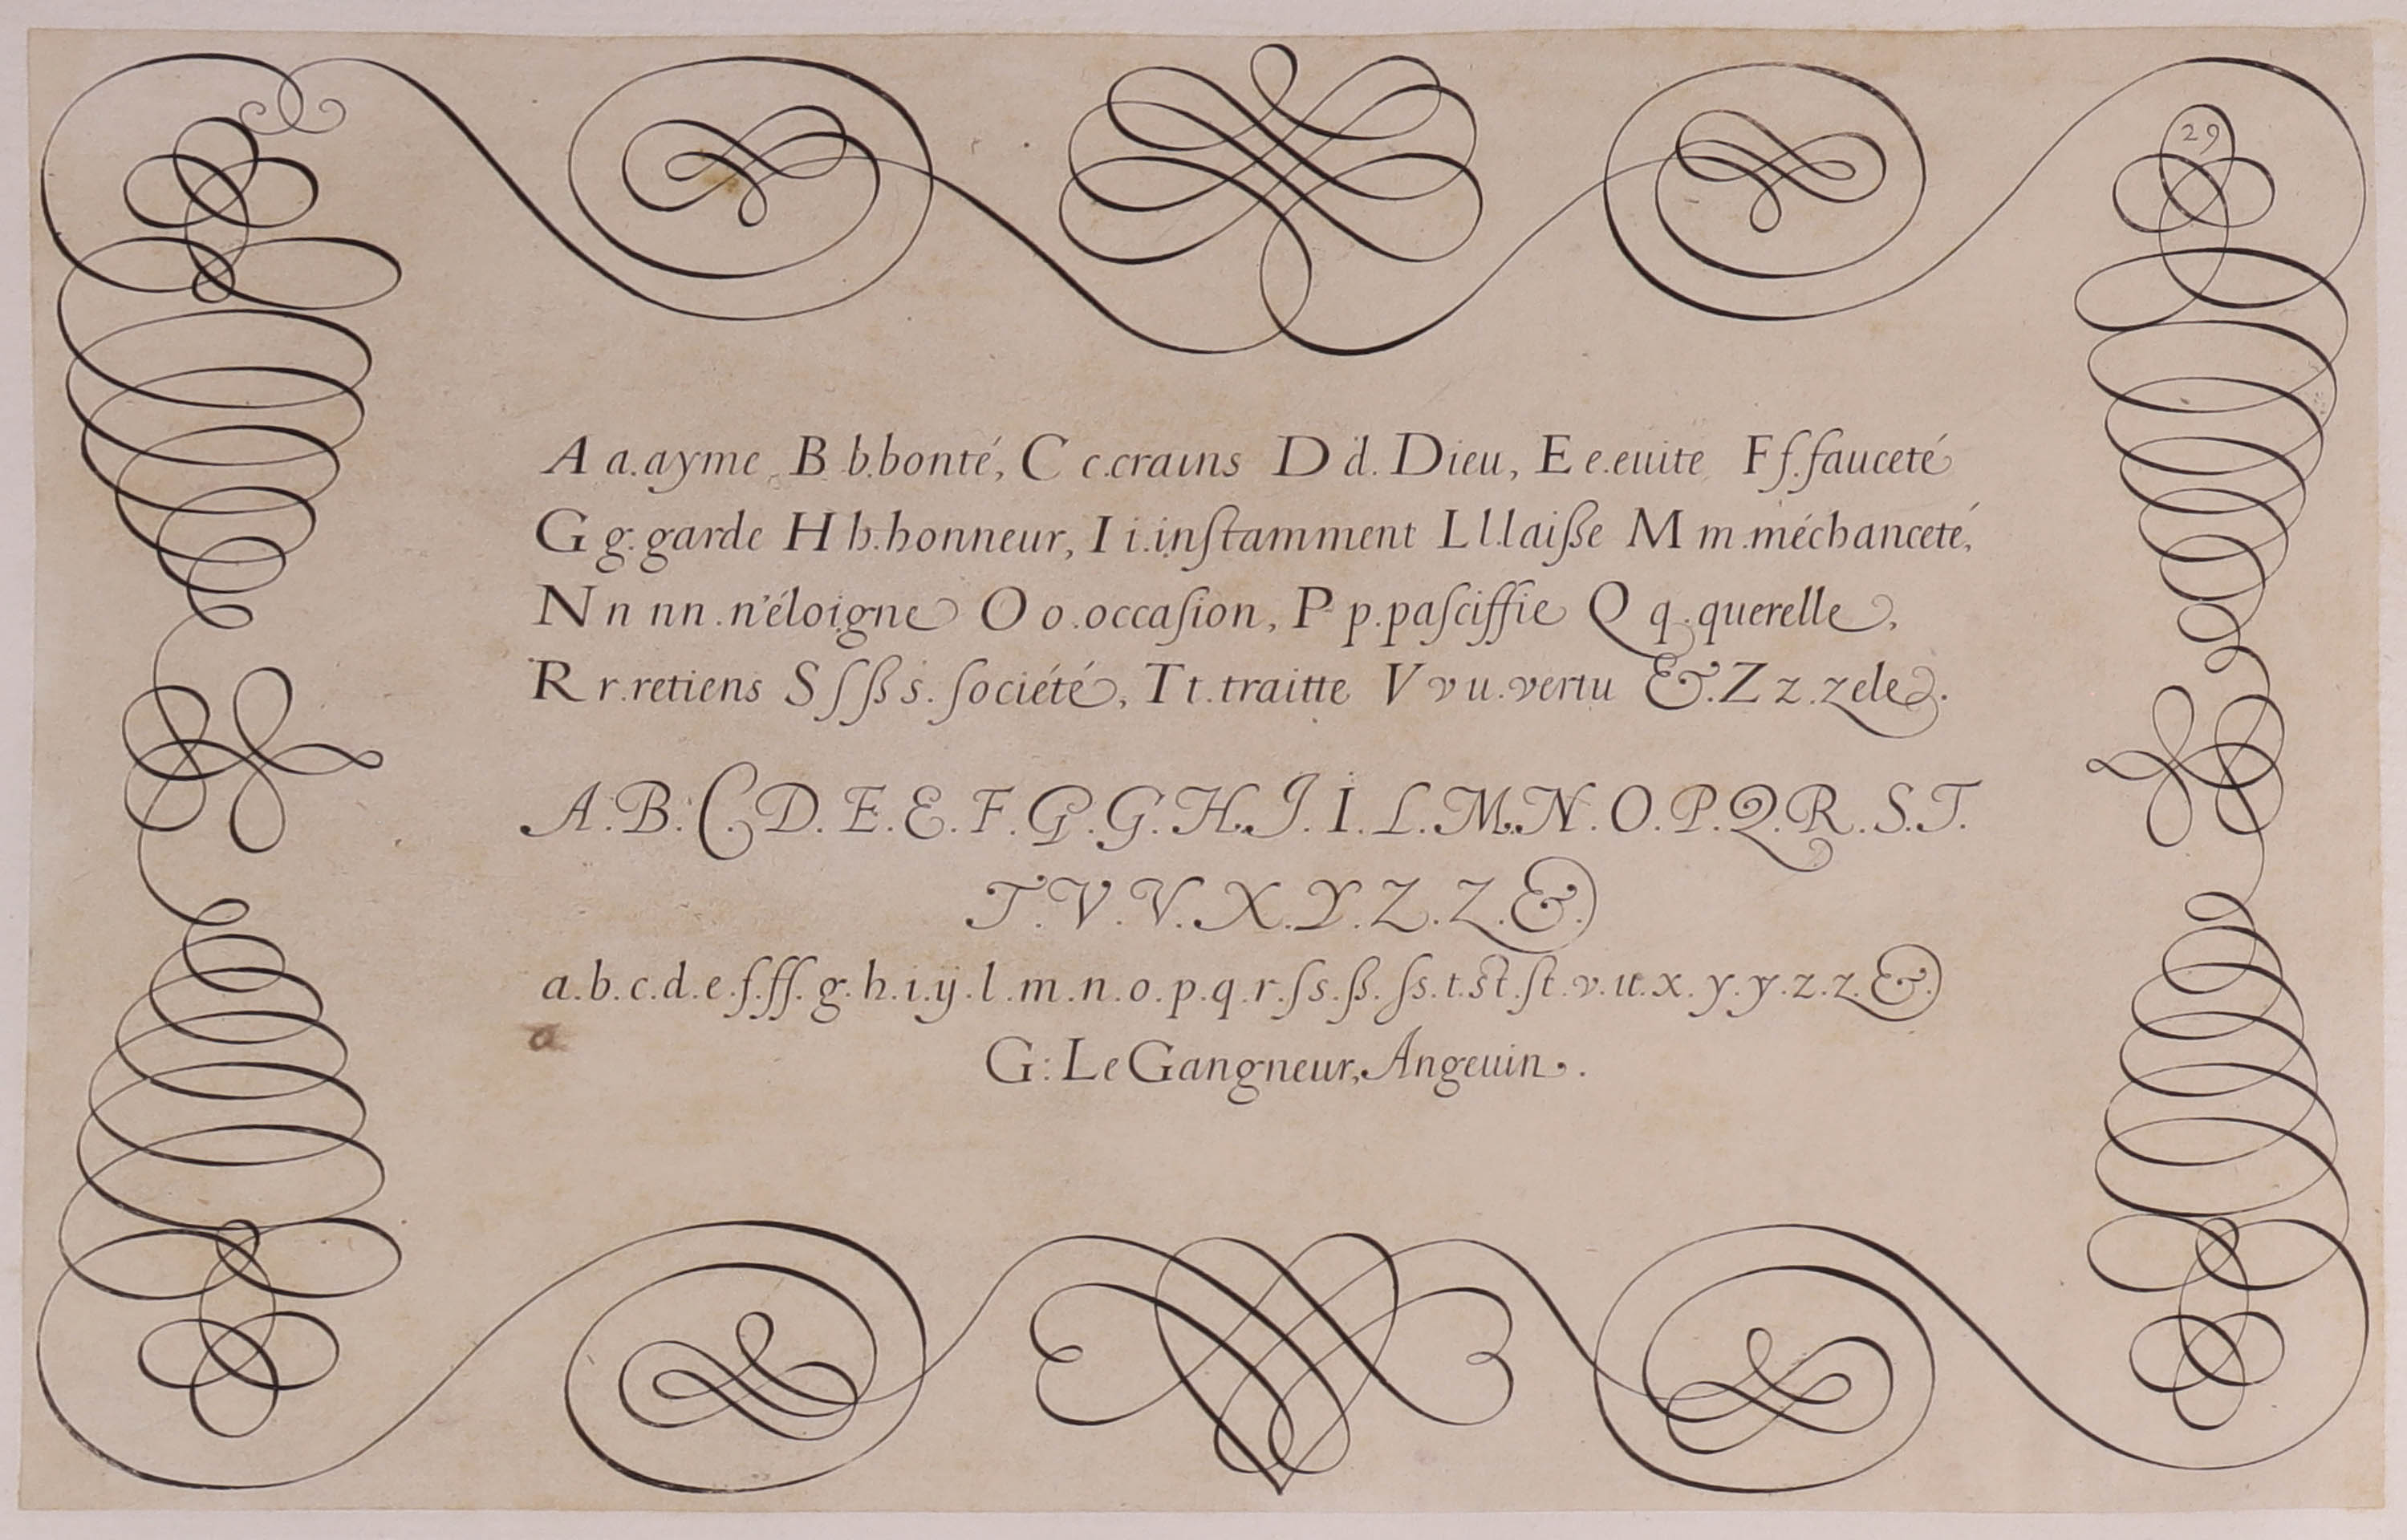 29
A a.ayme, B b.bonté, C c.crains D d. Dieu, E e.euite F f.fauceté
G g.garde H h.honneur, I i.inſtamment L l.laiße M m.méchanceté,
N n nn.n'éloigne O o.occaſion, P p.paſciffie Q q.querelle,
R r.retiens S ſ ß s. ſociété, T t.traitte V v u.vertu &. Z z.zele.
A.B.C.D.E.E.F.G.G.H.J.I.L.M.N.O.P.Q.R.S.T.
T.V.V.X.Y.Z.Z.&.
a.b.c.d.e.f.ff.g.h.i.ij.l.m.n.o.p.q.r.ſs.ß.ſs.t.st.ſt.v.u.x.y.y.z.z.&.
G: Le Gangneur, Angeuin.